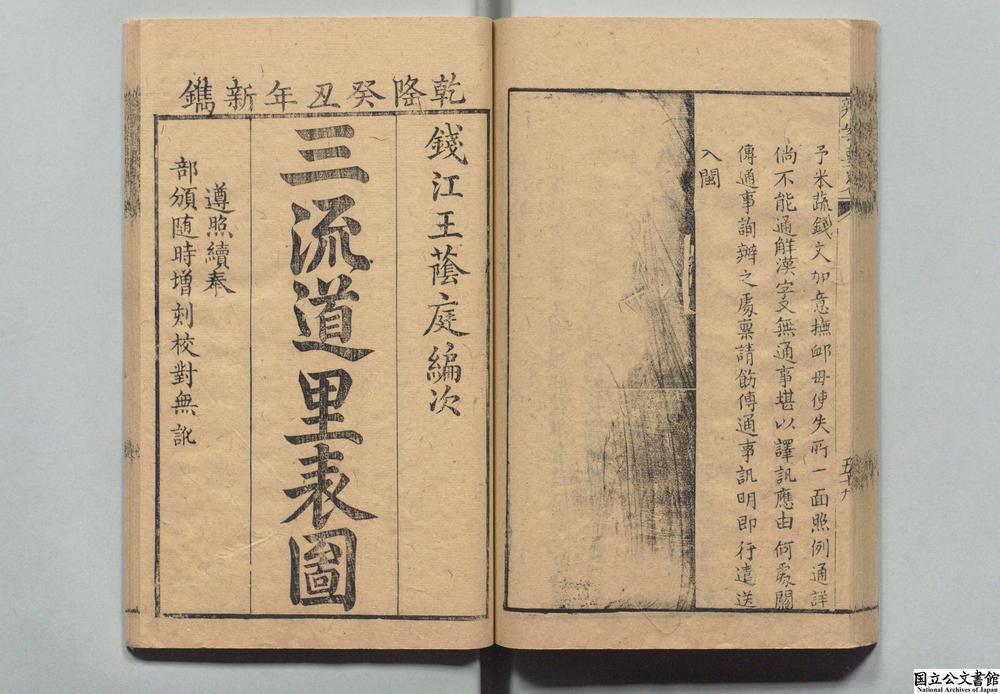 予米蔬錢文加意撫䘏毋使失所一面照例通詳
倘不能通解漢字又無通事堪以譯訊應由何處關
傳通事詢辦之處禀請飭傳通事訊明即行遣送
入閩
五十九
乾隆癸丑年新鐫
錢江王蔭庭編次
三流道里表圖
遵照續奉
部頒随時增刻校對無訛
国立公文書館
National Archives of Japan